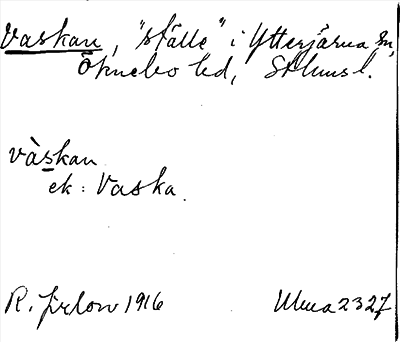 Vaskan, "ställe" i Ytterjärna sn,
Öknebo hd, Sthmsl.
vàskan
ek: Vaska.
R. Jirlow 1916 Ulma 2327